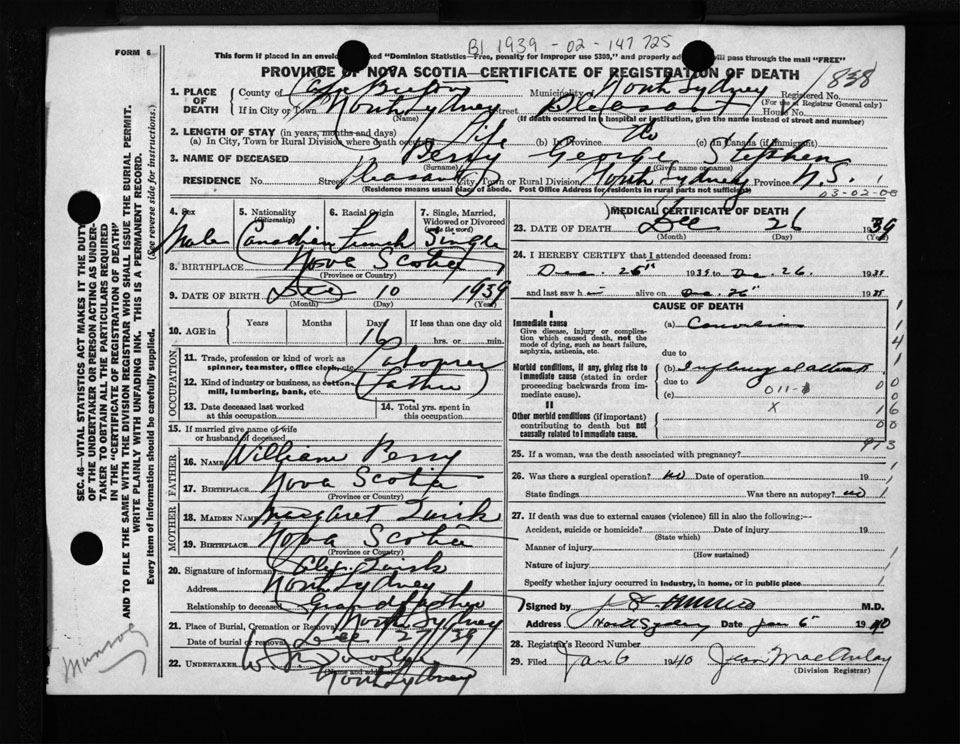 B1 1939 - 02 - 147725
FORM 6
This form if placed in an envelope marked "Dominion Statistics—Free, penalty for improper use $300," and properly addressed will pass through the mail "FREE"
PROVINCE OF NOVA SCOTIA—CERTIFICATE OF REGISTRATION OF DEATH
838
1. PLACE OF DEATH County of Cape Breton Municipality North Sydney Registered No.
(For use of Registrar General only)
If in City or Town North Sydney Street Pleasant House No.
(Name) (If death occurred in a hospital or institution, give the name instead of street and number)
2. LENGTH OF STAY (in years, months and days)
(a) In City, Town or Rural Division where death occurred Life (b) In Province (c) In Canada (if immigrant)
3. NAME OF DECEASED Perry George Stephen
(Surname) (Given name or names)
RESIDENCE No. Street Pleasant City, Town or Rural Division North Sydney Province N.S.
(Residence means usual place of abode. Post Office Address for residents in rural parts not sufficient)
03-02-08
4. Sex Male
5. Nationality (Citizenship) Canadian
6. Racial Origin French
7. Single, Married, Widowed or Divorced (write the word) Single
8. BIRTHPLACE Nova Scotia
(Province or Country)
9. DATE OF BIRTH Dec 10 1939
(Month) (Day) (Year)
10. AGE in Years Months Days 16 If less than one day old
hrs. or min.
OCCUPATION
11. Trade, profession or kind of work as spinner, teamster, office clerk, etc. Laborer
12. Kind of industry or business, as cotton mill, lumbering, bank, etc. (Father)
13. Date deceased last worked at this occupation
14. Total yrs. spent in this occupation
15. If married give name of wife or husband of deceased
FATHER
16. Name William Perry
17. Birthplace Nova Scotia
(Province or Country)
MOTHER
18. Maiden Name Margaret
19. Birthplace Nova Scotia
(Province or Country)
20. Signature of informant
Address North Sydney
Relationship to deceased Grandfather
21. Place of Burial, Cremation or Removal North Sydney
Date of burial or removal Dec. 27/39
22. UNDERTAKER
North Sydney
MEDICAL CERTIFICATE OF DEATH
23. DATE OF DEATH Dec 26 1939
(Month) (Day) (Year)
24. I HEREBY CERTIFY that I attended deceased from:
Dec. 26th 1939 to Dec. 26 1939
and last saw h alive on Dec. 26th 1939
CAUSE OF DEATH
I
Immediate cause
Give disease, injury or complication which caused death, not the mode of dying, such as heart failure, asphyxia, asthenia, etc.
(a)
due to
Morbid conditions, if any, giving rise to immediate cause (stated in order proceeding backwards from immediate cause)
(b)
due to
(c)
011-1
X
II
Other morbid conditions (if important) contributing to death but not causally related to immediate cause.
913
25. If a woman, was the death associated with pregnancy?
26. Was there a surgical operation? no Date of operation 19
State findings Was there an autopsy? no
27. If death was due to external causes (violence) fill in also the following:—
Accident, suicide or homicide? Date of injury 19
(State which)
Manner of injury
(How sustained)
Nature of injury
Specify whether injury occurred in industry, in home, or in public place
Signed by M.D.
Address North Sydney Date Jan 6 1940
28. Registrar's Record Number
29. Filed Jan 6 1940 Jean MacAulay
(Division Registrar)
SEC. 46—VITAL STATISTICS ACT MAKES IT THE DUTY
OF THE UNDERTAKER OR PERSON ACTING AS UNDER-
TAKER TO OBTAIN ALL THE PARTICULARS REQUIRED
IN THE "CERTIFICATE OF REGISTRATION OF DEATH"
AND TO FILE THE SAME WITH THE DIVISION REGISTRAR WHO SHALL ISSUE THE BURIAL PERMIT.
WRITE PLAINLY WITH UNFADING INK. THIS IS A PERMANENT RECORD.
Every item of information should be carefully supplied. (See reverse side for instructions.)
Munroe